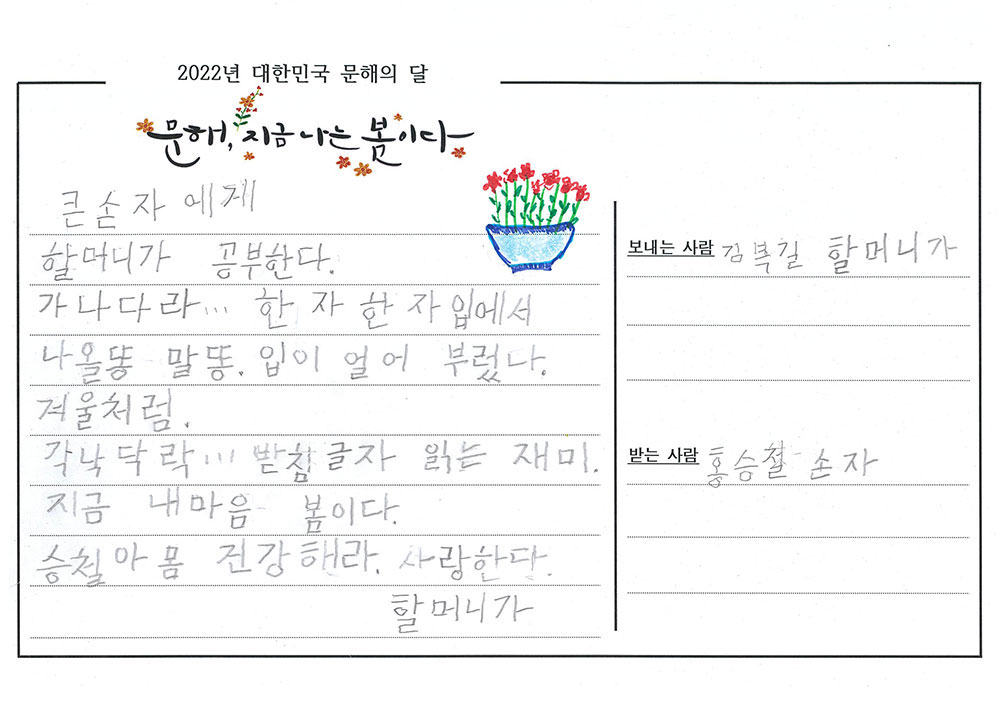 2022년 대한민국 문해의 달
문해, 지금 나는 봄이다
큰손자에게
할머니가 공부한다.
가나다라... 한 자 한 자 입에서
나올똥 말똥. 입이 얼어 부렀다.
겨울처럼.
각낙닥락... 받침글자 읽는 재미.
지금 내마음 봄이다.
승철아 몸 건강해라. 사랑한다.
할머니가
보내는 사람 김복길 할머니가
받는 사람 홍승철 손자